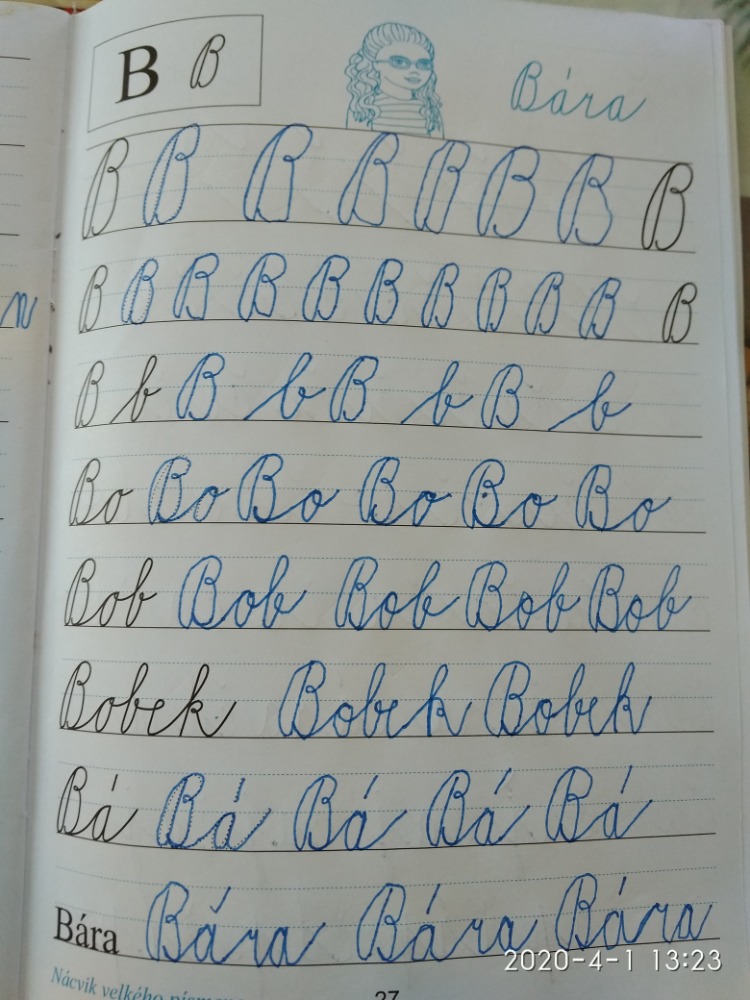 B B Bára
B B B B B B B B
B B B B B B B B B B B
B b B b B b B b
Bo Bo Bo Bo Bo Bo
Bob Bob Bob Bob Bob
Bobek Bobek Bobek
Bá Bá Bá Bá Bá
Bára Bára Bára Bára
2020-4-1 13:23
Nácvik velkého
27